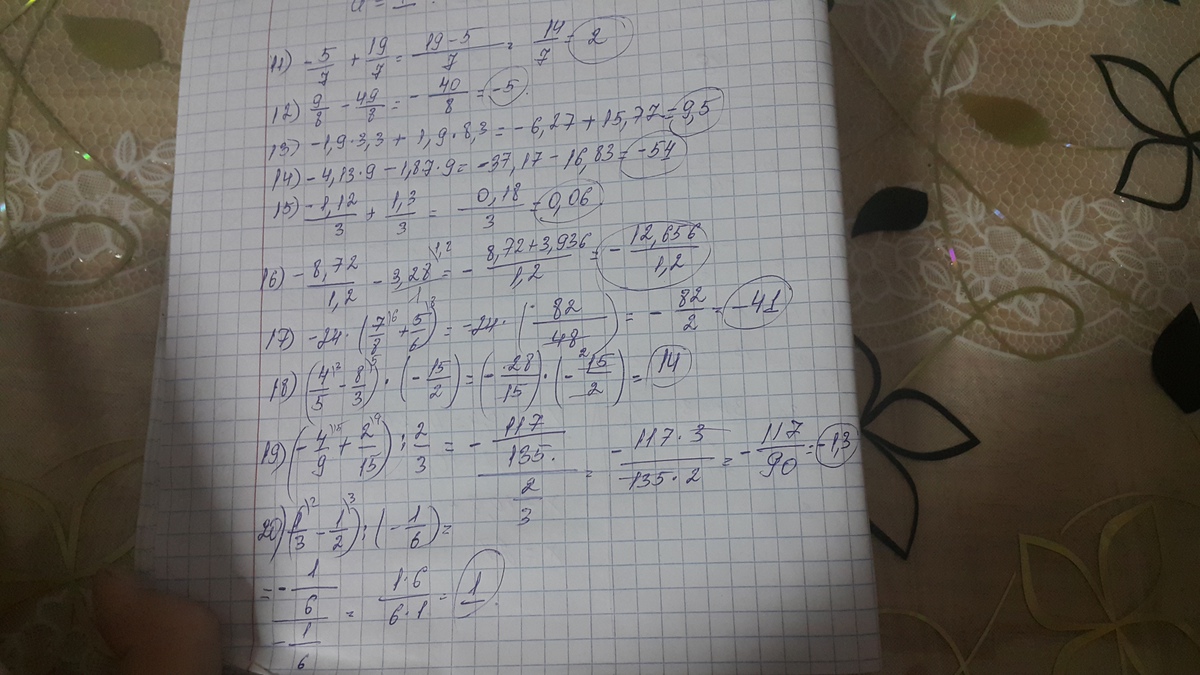 11) -5/7 + 19/7 = 19-5/7 = 14/7 = 2
12) 9/8 - 49/8 = - 40/8 = -5.
13) -1,9·3,3 + 1,9·8,3 = -6,27 + 15,77 = 9,5
14) -4,13·9 - 1,87·9 = -37,17 - 16,83 = -54
15) -1,12/3 + 1,3/3 = 0,18/3 = 0,06
16) - 8,72/1,2 - 3,28/1 \1,2 = - 8,72+3,936/1,2 = - 12,656/1,2
17) -24·(7/8 \6 + 5/6 \8) = -24·(82/48) = - 82/2 = -41
18) (4/5 \3 - 8/3 \5)·(-15/2) = (-28/15)·(-15/2) = 14
19) (-4/9 \15 + 2/15 \9) : 2/3 = - 117/135 / 2/3 = -117·3/135·2 = - 117/90 = -1,3
20) (1/3 \2 - 1/2 \3) : (-1/6) =
= -1/6 / -1/6 = 1·6/6·1 = 1.